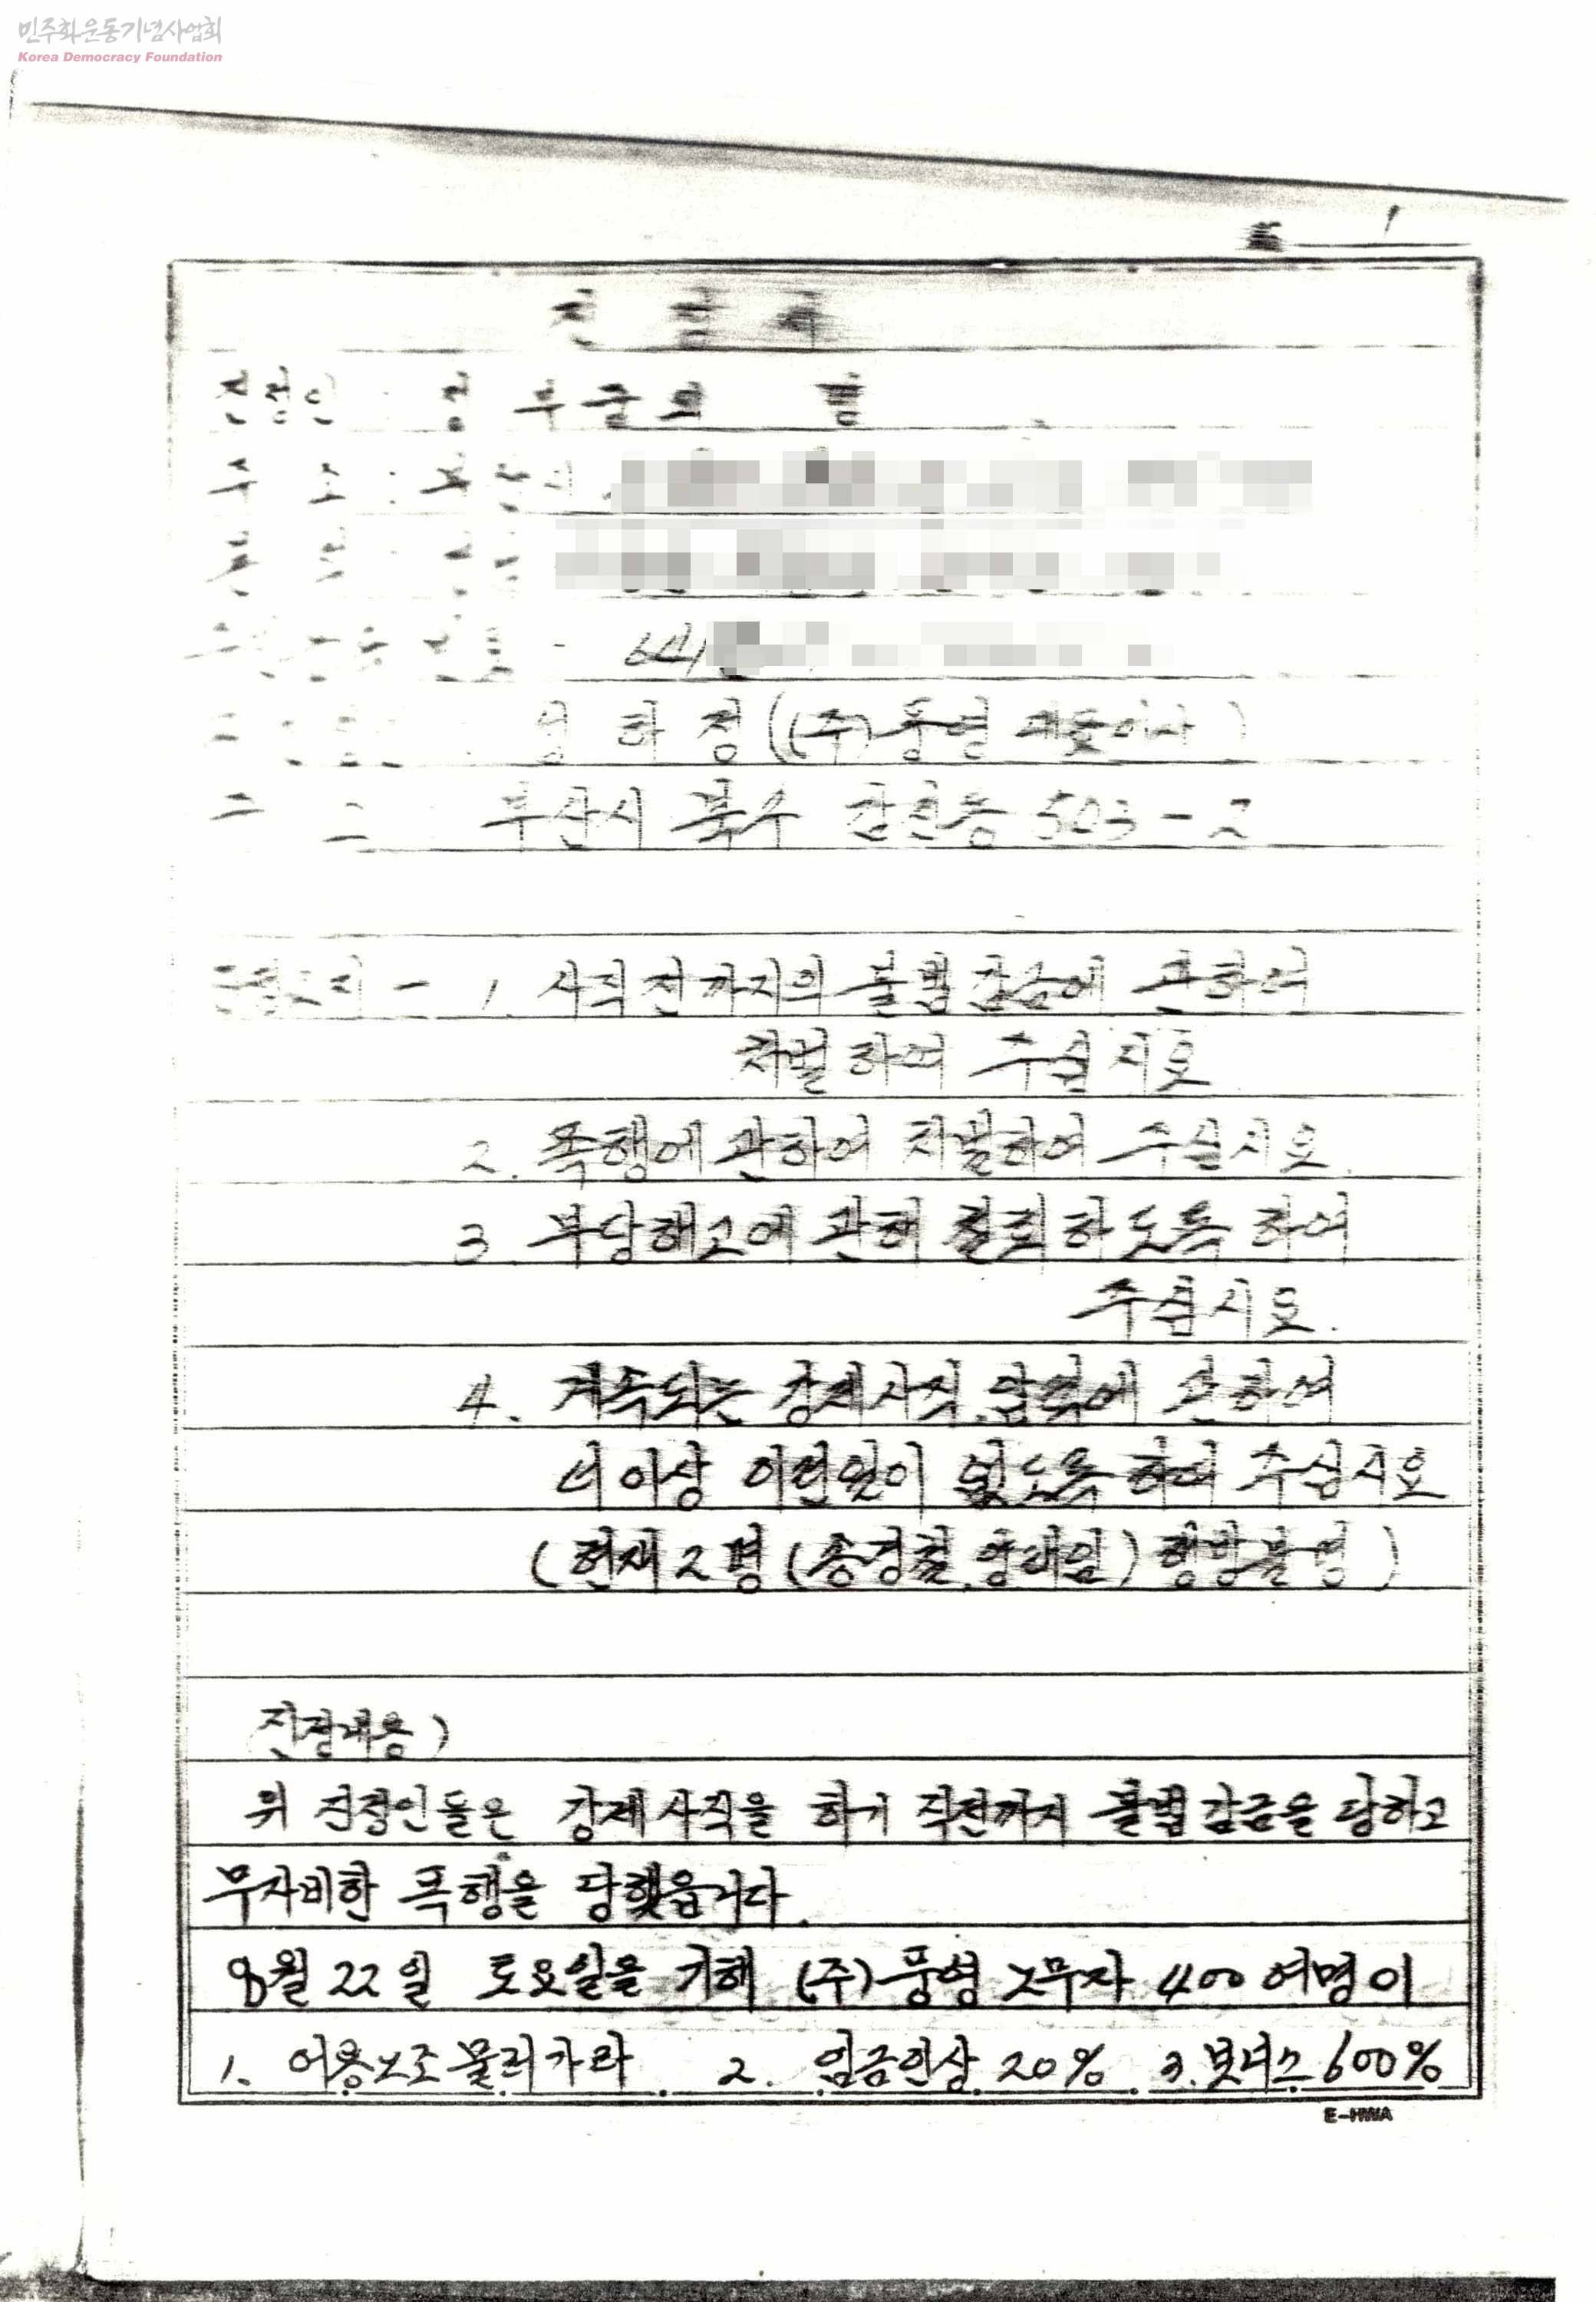 민주화운동기념사업회
Korea Democracy Foundation
1
진정서
진정인 : 정 부굴외
주 소 : 부산시
본
주민등록번호 - 641
정 ((주)풍영 대표이사)
주 소 부산시 북구 감전동 503-2
1. 사직전까지의 불법감금에 관하여
처벌하여 주십시오
2. 폭행에 관하여 처벌하여 주십시오.
3 부당해고에 관해 철회하도록 하여
주십시오.
4. 계속되는 강제사직, 압력에 관하여
더이상 이런일이 없도록 하여 주십시오
(현재 2명 (송경철, ) 행방불명)
진정내용)
위 진정인들은 강제사직을 하기 직전까지 불법감금을 당하고
무자비한 폭행을 당했읍니다.
8월 22일 토요일을 기해 (주)풍영 노무자 400여명이
1. 어용노조 물러가라 2. 임금인상 20% 3. 보너스 600%
E-HWA